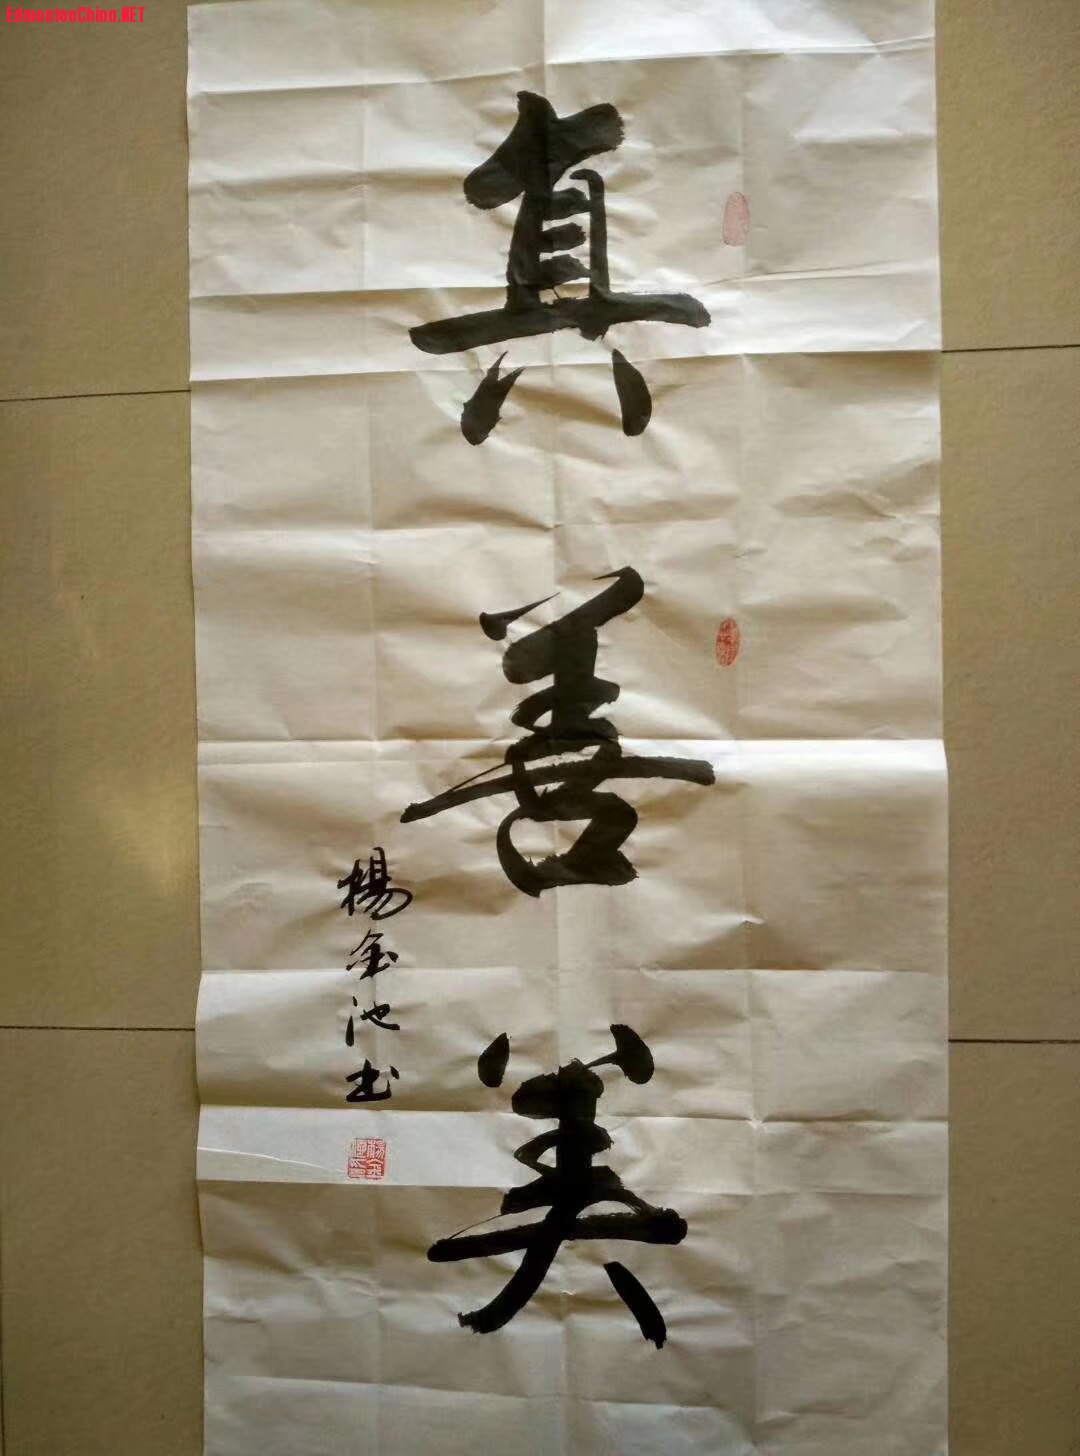 EdmontonChina.NET
真善美
楊金池书